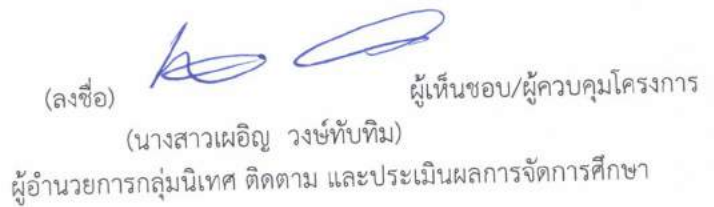 (ลงชื่อ) ผู้เห็นชอบ/ผู้ควบคุมโครงการ
(นางสาวเผอิญ วงษ์ทับทิม)
ผู้อำนวยการกลุ่มนิเทศ ติดตาม และประเมินผลการจัดการศึกษา